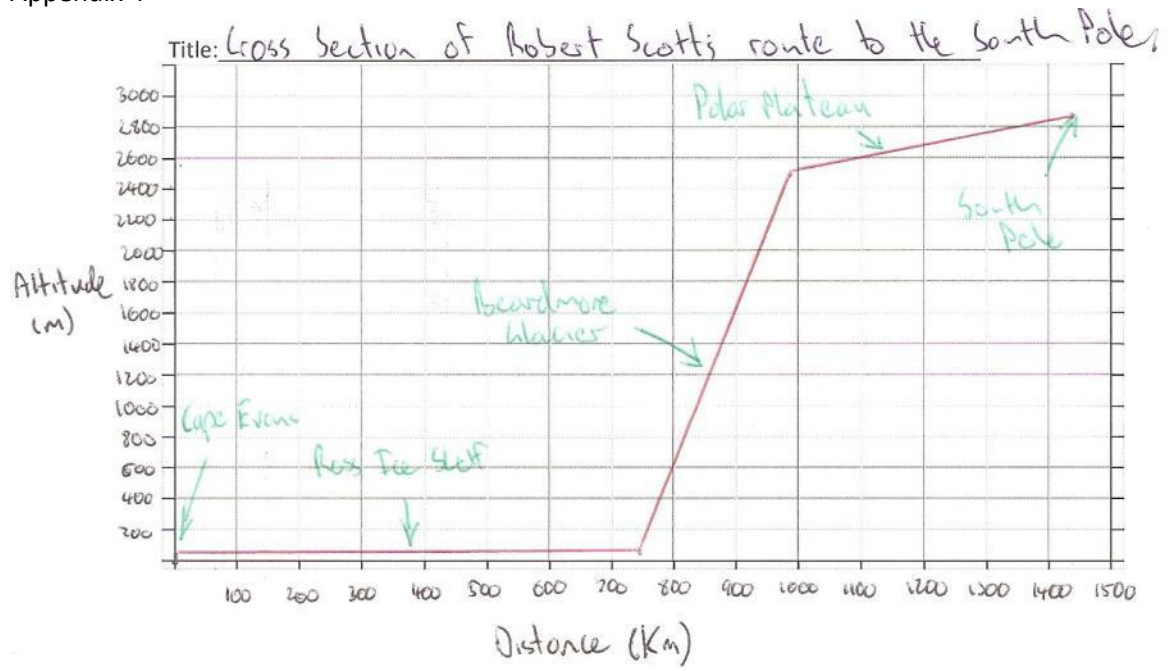 Title: Cross Section of Robert Scott's route to the South Pole.
3000
2800
2600
2400
2200
2000
1800
1600
1400
1200
1000
800
600
400
200
Altitude
(m)
Polar Plateau
South
Pole
Beardmore
Glacier
Cape Evans
Ross Ice Shelf
100 200 300 400 500 600 700 800 900 1000 1100 1200 1300 1400 1500
Distance (Km)